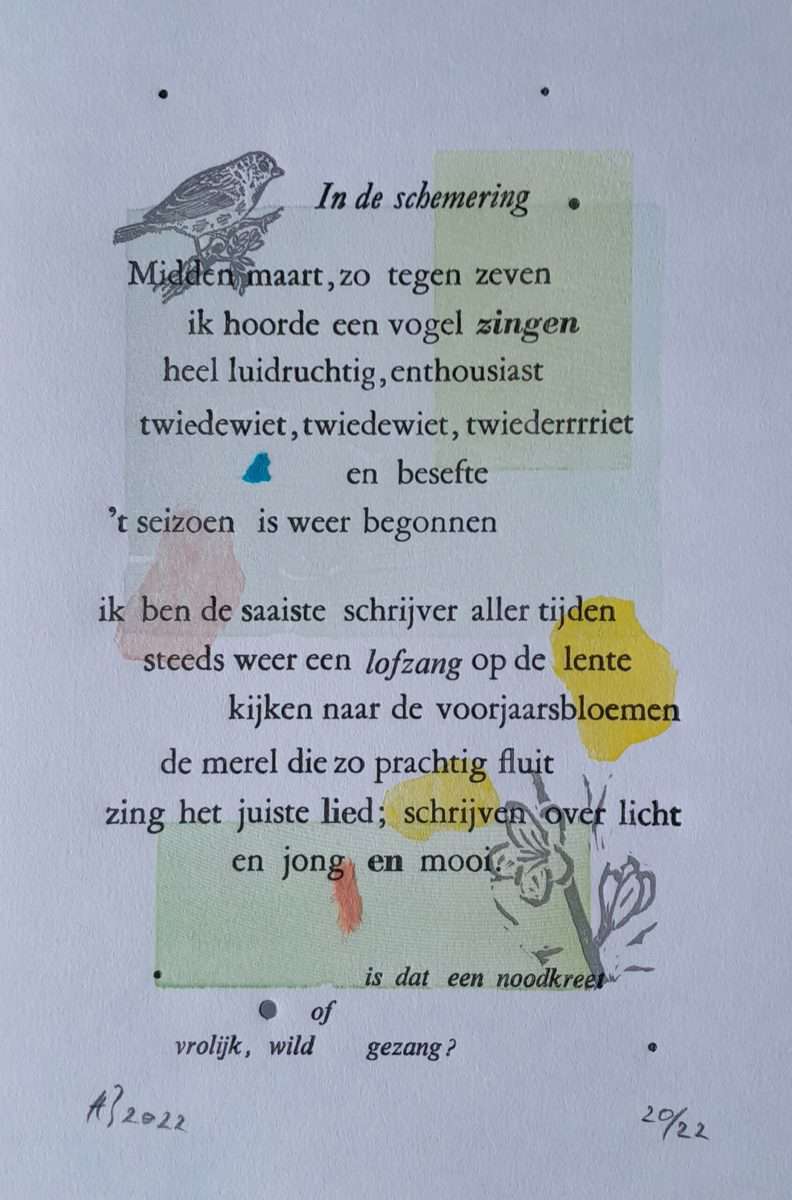 In de schemering
Midden maart, zo tegen zeven
ik hoorde een vogel zingen
heel luidruchtig, enthousiast
twiedewiet, twiedewiet, twiederrrriet
en besefte
’t seizoen is weer begonnen
ik ben de saaiste schrijver aller tijden
steeds weer een lofzang op de lente
kijken naar de voorjaarsbloemen
de merel die zo prachtig fluit
zing het juiste lied; schrijven over licht
en jong en mooi.
is dat een noodkreet
of
vrolijk, wild gezang?
2022
20/22